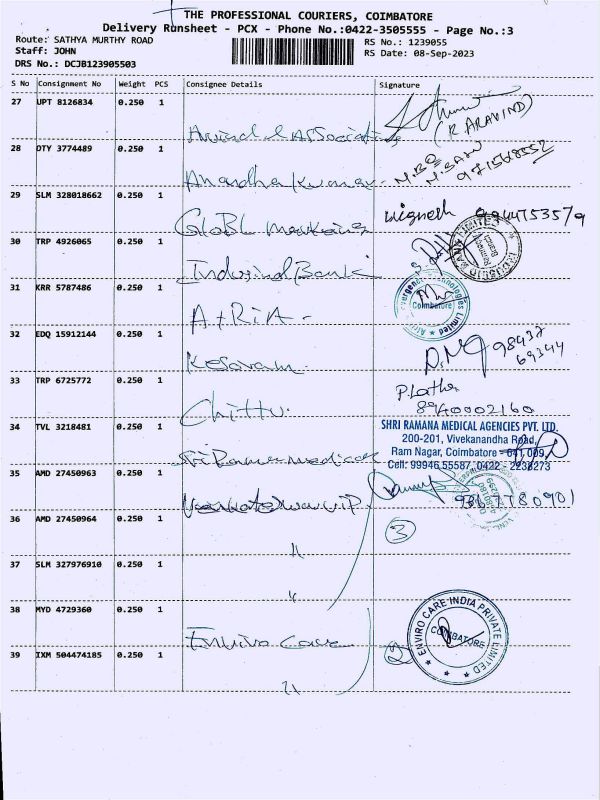 THE PROFESSIONAL COURIERS, COIMBATORE
Delivery Runsheet - PCX - Phone No.:0422-3505555 - Page No.:3
Route: SATHYA MURTHY ROAD
RS No.: 1239055
Staff: JOHN
RS Date: 08-Sep-2023
DRS No.: DCJB123905503
S No Consignment No Weight PCS Consignee Details Signature
27 UPT 8126834 0.250 1
(R ARAVIND)
28 DTY 3774489 0.250 1
Anandha Kumar
29 SLM 328018662 0.250 1
Vignesh
30 TRP 4926065 0.250 1
IndusindBank
31 KRR 5787486 0.250 1
Coimbatore
AtRiA -
32 EDQ 15912144 0.250 1
98437
69344
Kesavam
33 TRP 6725772 0.250 1
P.Latha
8940002160
Chittu.
34 TVL 3218481 0.250 1
SHRI RAMANA MEDICAL AGENCIES PVT. LTD.
200-201, Vivekanandha Road,
Ram Nagar, Coimbatore - 641 009,
Cell: 99946 55587, 0422 - 2238273
35 AMD 27450963 0.250 1
36 AMD 27450964 0.250 1
3
"
37 SLM 327976910 0.250 1
"
38 MYD 4729360 0.250 1
Enviro Care
ENVIRO CARE INDIA PRIVATE LIMITED
COIMBATORE
2
39 IXM 504474185 0.250 1
"